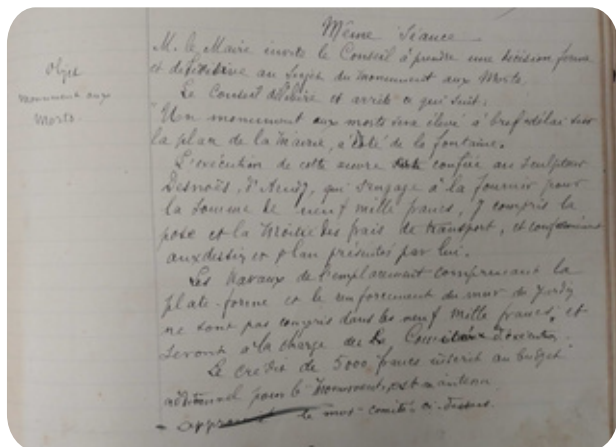 Même Séance
Objet
monument aux
Morts
M. le Maire invite le Conseil à prendre une décision ferme
et définitive au sujet du monument aux Morts.
Le Conseil délibère et arrête ce qui suit.
Un monument aux morts sera élevé à bref délai sur
la place de la Mairie, à côté de la fontaine.
L'exécution de cette œuvre confiée au sculpteur
qui s'engage à la fournir pour
la somme de neuf mille francs, y compris la
pose et la moitié des frais de transport, et conformément
aux dessin et plan présentés par lui.
Les travaux de l'emplacement comprenant la
plate-forme et le renforcement du mur du jardin
ne sont pas compris dans les neuf mille francs, et
seront à la charge
Le crédit de 5000 francs inscrit au budget
additionnel pour le Monument, est maintenu.
ci-dessus.